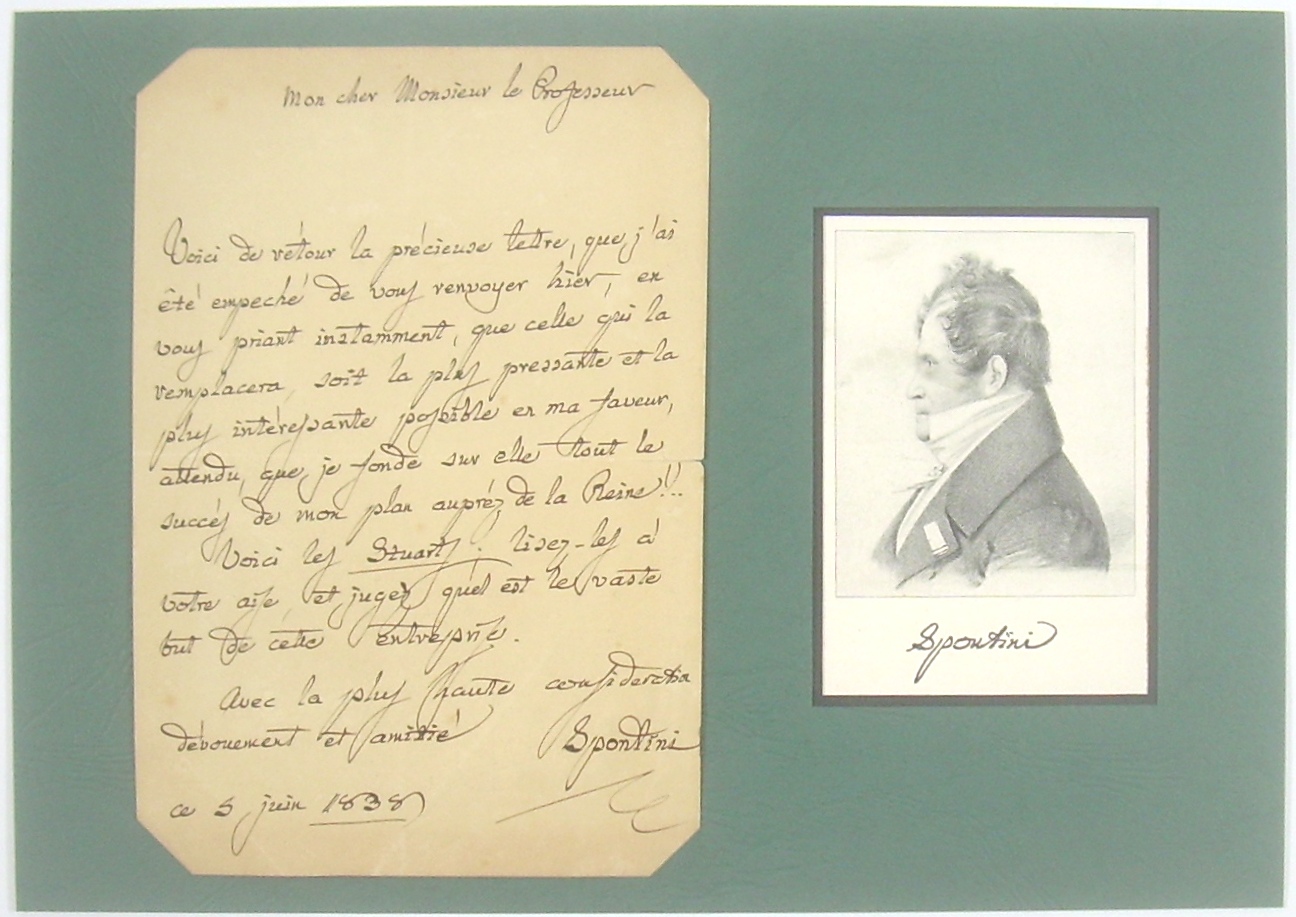 Mon cher Monsieur le Professeur
Voici de retour la précieuse lettre, que j'ai
été empeché de vous renvoyer hier, en
vous priant instamment, que celle qui la
remplacera, soit la plus pressante et la
plus intéressante possible en ma faveur,
attendu, que je fonde sur elle tout le
succés de mon plan auprés de la Reine!!..
Voici les Stuarts. lisez-les à
votre aise et jugez quel est le vaste
but de cette entreprise.
Avec la plus haute consideration
dévouement et amitié Spontini
ce 5 juin 1838
Spontini